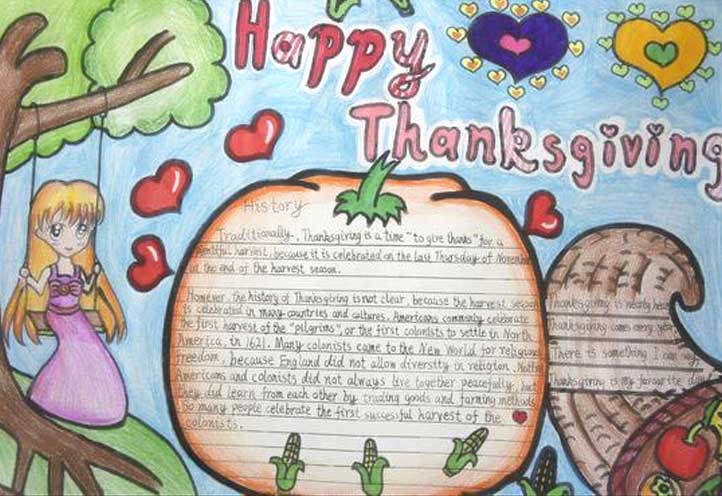 Happy
Thanksgiving
History
Traditionally, Thanksgiving is a time "to give thanks" for a
plentiful harvest, because it is celebrated on the last Thursday of November
at the end of the harvest season.
However, the history of Thanksgiving is not clear, because the harvest season
is celebrated in many countries and cultures. Americans commonly celebrate
the first harvest of the "pilgrims", or the first colonists to settle in North
America, in 1621. Many colonists came to the New World for religious
freedom, because England did not allow diversity in religion.
Americans and colonists did not always live together peacefully, but
they did learn from each other by trading goods and farming methods.
So many people celebrate the first successful harvest of the
colonists.
Thanksgiving is nearly here
Thanksgiving comes every year
There is something I can say
Thanksgiving is my favourite